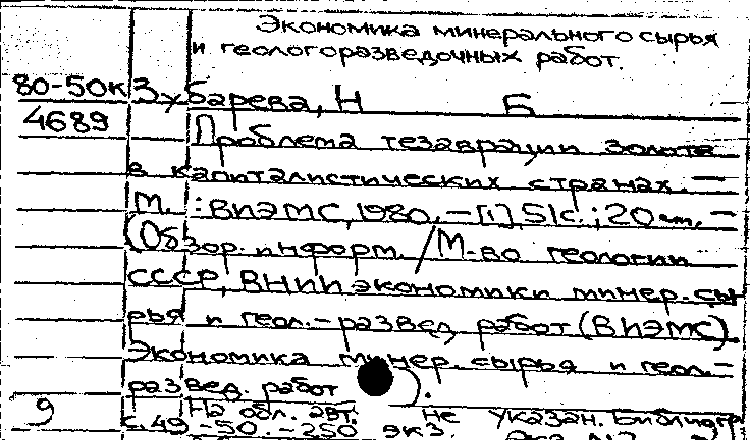 Экономика минерального сырья
и геологоразведочных работ.
80-50к Зубарева, Н Б
4689
Проблема тезаврации золота
в капиталистических странах. —
М. : ВИЭМС, 1980. — [1], 51 с. ; 20 см. —
(Обзор. информ. / М-во геологии
СССР, ВНИИ экономики минер. сы-
рья и геол.-развед. работ (ВИЭМС).
Экономика минер. сырья и геол.-
развед. работ ).
9 На обл. авт. не указан. Библиогр.
с. 49-50. - 250 экз.